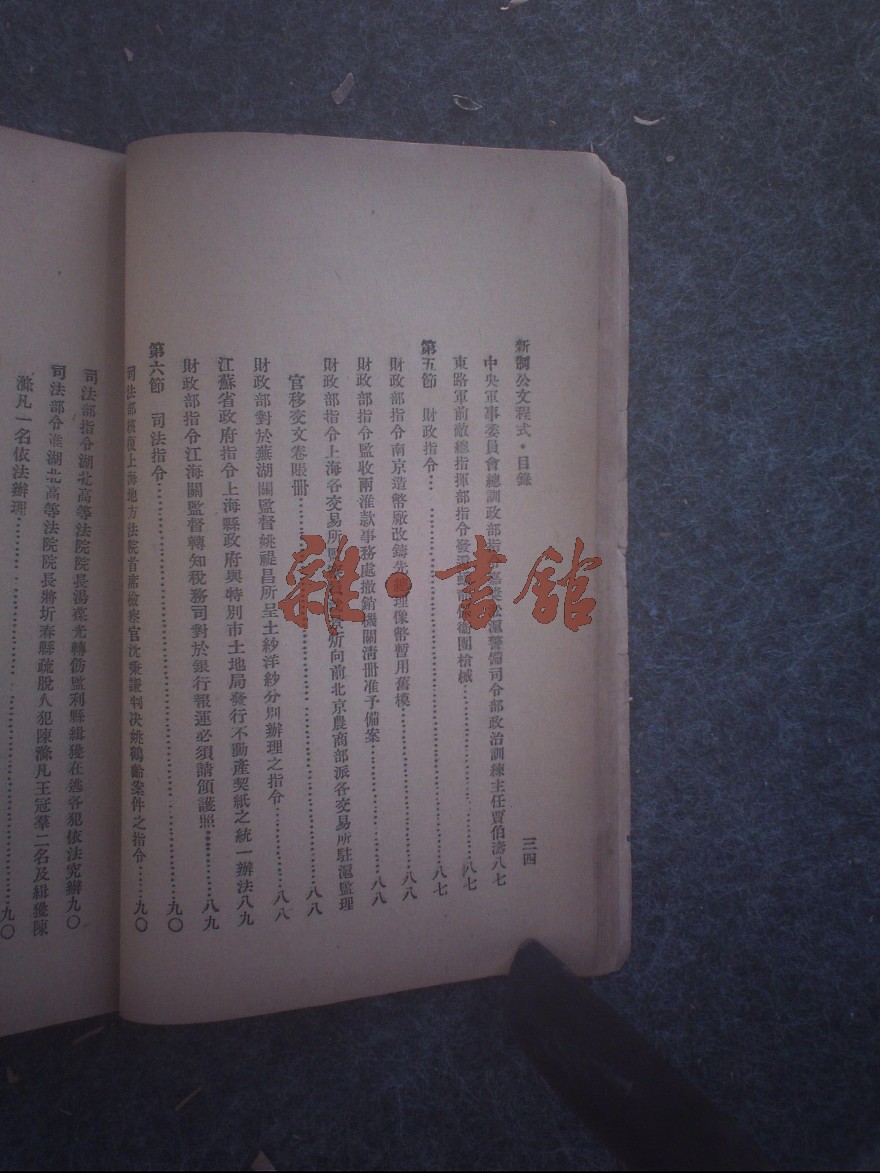 新制公文程式·目錄 三四
中央軍事委員會總訓政部指 淞滬警備司令部政治訓練主任賈伯濤八七
東路軍前敵總指揮部指令發還 衞團槍械……八七
第五節 財政指令……八七
財政部指令南京造幣廠改鑄先 理像幣暫用舊模……八八
財政部指令監收兩淮款事務處撤銷機關清册准予備案……八八
財政部指令上海各交易所監 所向前北京農商部派各交易所駐滬監理
官移交文卷賬冊……八八
財政部對於蕪湖關監督姚禔昌所呈土紗洋紗分別辦理之指令……八八
江蘇省政府指令上海縣政府與特別市土地局發行不動產契紙之統一辦法八九
財政部指令江海關監督轉知稅務司對於銀行報運必須請領護照……八九
第六節 司法指令……九〇
司法部核復上海地方法院首席檢察官沈秉謙判決姚鶴齡案件之指令……九〇
司法部指令湖北高等法院院長湯葆光轉飭監利縣緝獲在逃各犯依法究辦九〇
司法部令淮湖北高等法院院長將圻春縣疏脫人犯陳滌凡王冠羣二名及緝獲陳
滌凡一名依法辦理……九〇
雜·書館